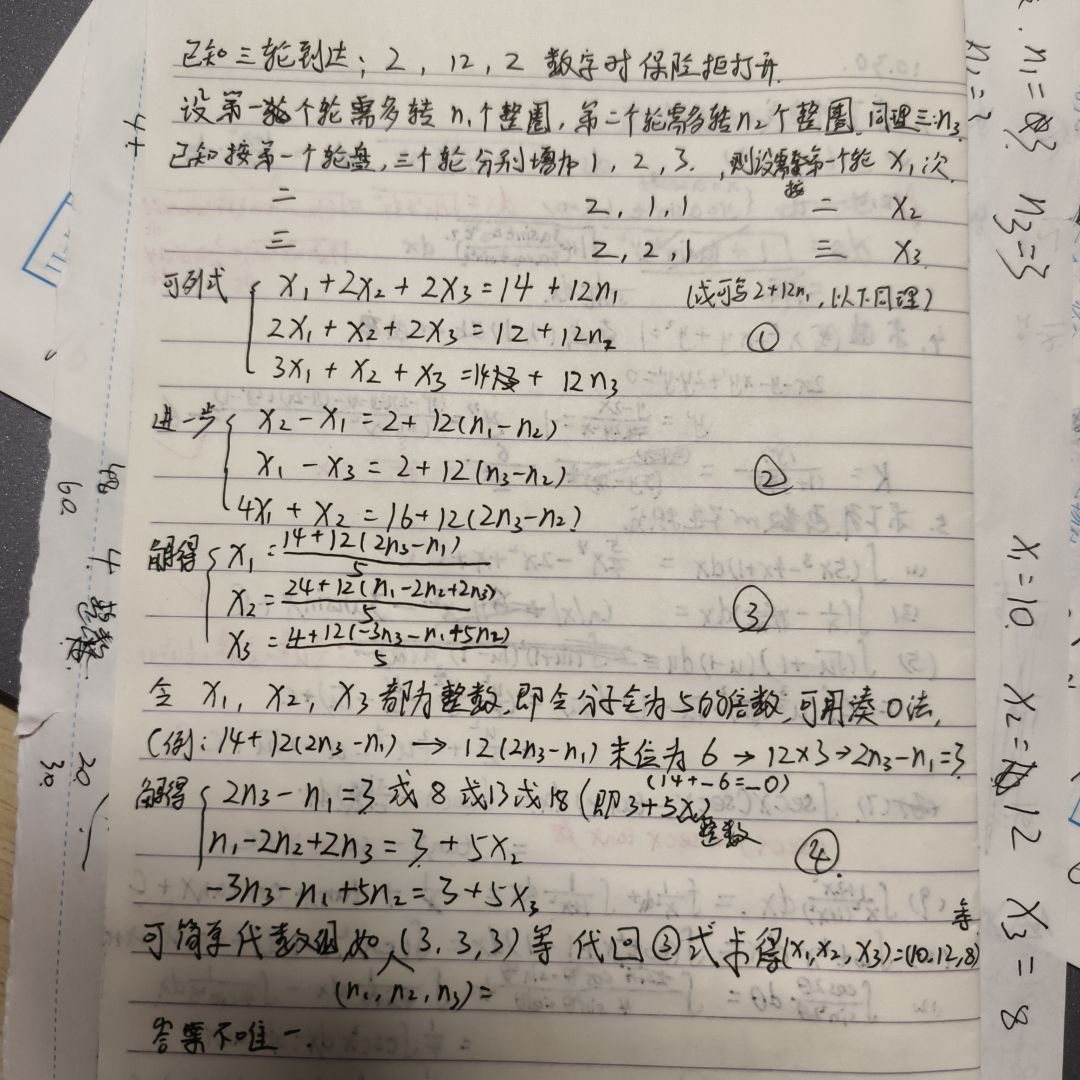 已知三轮到达：2，12，2 数字时保险柜打开.
设第一个轮需多转 n₁个整圈，第二个轮需多转 n₂个整圈，同理三:n₃.
已知按第一个轮盘，三个轮分别增加 1，2，3.，则设需按第一个轮 X₁次.
二 2，1，1 二 X₂
三 2，2，1 三 X₃
可列式 { X₁+2X₂+2X₃=14+12n₁ (或可写2+12n₁，以下同理)
2X₁+X₂+2X₃=12+12n₂ ①
3X₁+X₂+X₃=14+12n₃
进一步 { X₂-X₁=2+12(n₁-n₂)
X₁-X₃=2+12(n₃-n₂) ②
4X₁+X₂=16+12(2n₃-n₂)
解得 { X₁=14+12(2n₃-n₁)/5
X₂=24+12(n₁-2n₂+2n₃)/5 ③
X₃=4+12(-3n₃-n₁+5n₂)/5
令 X₁，X₂，X₃都为整数，即令分子全为5的倍数，可用凑0法，
(例：14+12(2n₃-n₁)→12(2n₃-n₁)末位为6→12×3→2n₃-n₁=3
(14+-6=-0)
解得 { 2n₃-n₁=3或8或13或18(即3+5X₁)
整数
n₁-2n₂+2n₃=3+5X₂ ④
-3n₃-n₁+5n₂=3+5X₃
可简单代数如(3，3，3)等代回③式求得(X₁,X₂,X₃)=(10,12,8)等
(n₁,n₂,n₃)=
答案不唯一.
n₁=3
n₃=3
n₁=?
X₁=10
X₂=12
X₃=8
4+
48
60
4.
整数
20
30